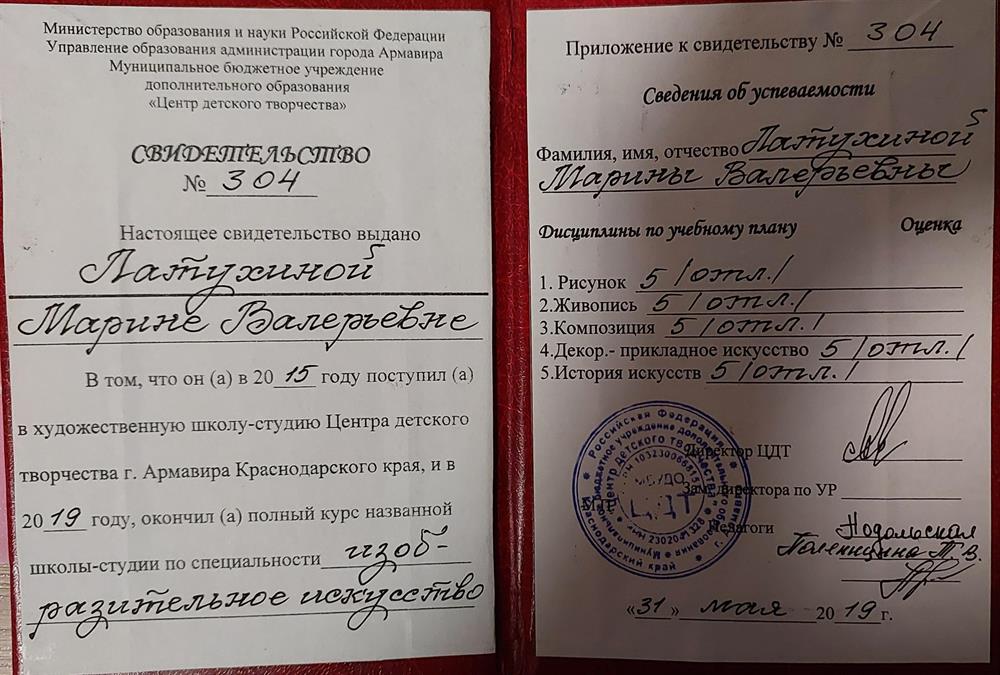 Министерство образования и науки Российской Федерации
Управление образования администрации города Армавира
Муниципальное бюджетное учреждение
дополнительного образования
«Центр детского творчества»
СВИДЕТЕЛЬСТВО
№ 304
Настоящее свидетельство выдано
Латухиной
Марине Валерьевне
В том, что он (а) в 2015 году поступил (а)
в художественную школу-студию Центра детского
творчества г. Армавира Краснодарского края, и в
2019 году, окончил (а) полный курс названной
школы-студии по специальности изоб-
разительное искусство
Приложение к свидетельству № 304
Сведения об успеваемости
Фамилия, имя, отчество Латухиной
Марины Валерьевны
Дисциплины по учебному плану Оценка
1. Рисунок 5 /отл./
2.Живопись 5 /отл./
3.Композиция 5 /отл./
4.Декор.- прикладное искусство 5 /отл./
5.История искусств 5 /отл./
Директор ЦДТ
Зам.директора по УР
Педагоги Подольская
Т. В.
«31» мая 2019 г.
Российская Федерация
Центр детского творчества
МБУДО
ЦДТ
Краснодарский край
г. Армавир